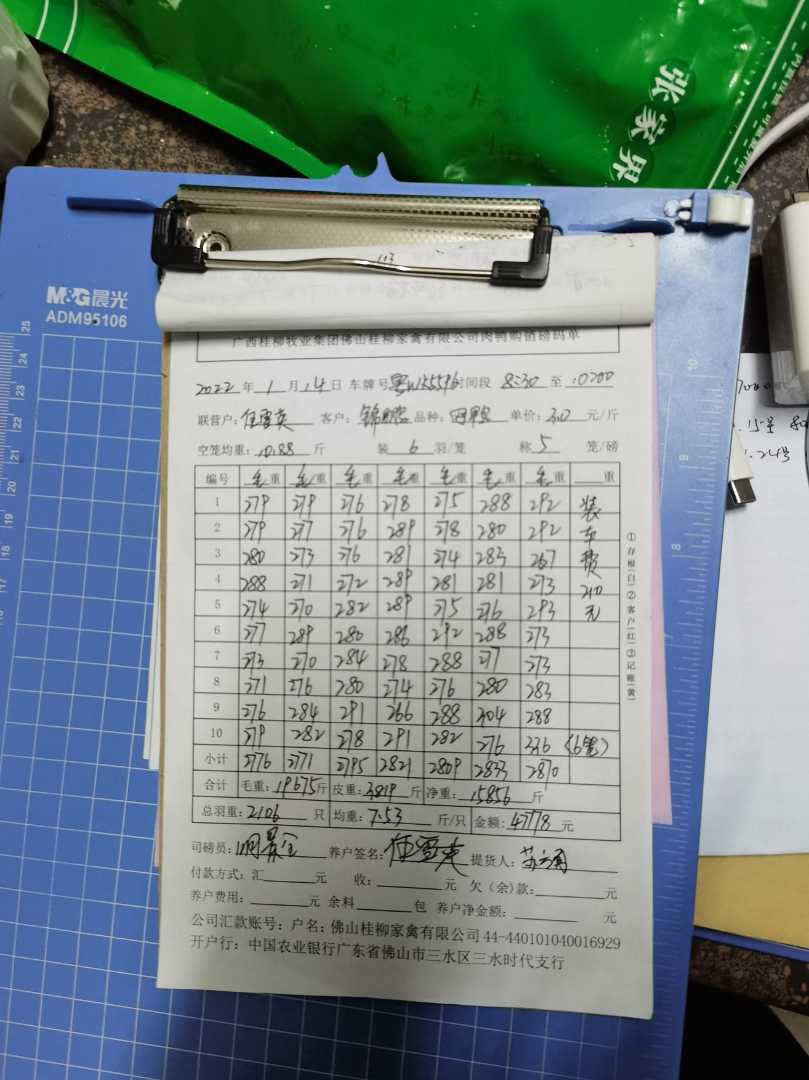 张家界
M&G晨光
ADM95106
广西桂柳牧业集团佛山桂柳家禽有限公司肉鸭购销磅码单
2022 年 1 月 14 日 车牌号 时间段 8:30 至 10200
联营户: 任雪英 客户: 锦鹏 品种: 单价: 3.0 元/斤
空笼均重: 10.88 斤 装 6 羽/笼 称 5 笼/磅
编号 毛重 毛重 毛重 毛重 毛重 毛重 毛重 重
1 279 279 276 278 275 288 292 装
2 279 277 276 289 278 280 292 车
3 280 273 276 281 274 283 267 费
4 288 271 272 289 281 281 273 210
5 274 270 282 289 275 276 293 元
6 277 289 280 286 292 288 273
7 273 270 284 278 288 277 273
8 271 276 280 274 276 280 283
9 276 284 291 266 288 304 288
10 279 282 278 291 282 276 336 (6笼)
小计 2776 2771 2795 2821 2809 2833 2870
合计 毛重: 19675斤 皮重: 3819斤 净重: 15856 斤
总羽重: 2106 只 均重: 7.53 斤/只 金额: 47778 元
①存根(白)②客户(红)③记账(黄)
司磅员: 养户签名: 任雪英 提货人:
付款方式: 汇 元 收: 元 欠(余)款: 元
养户费用: 元 余料 包 养户净金额: 元
公司汇款账号: 户名: 佛山桂柳家禽有限公司 44-440101040016929
开户行: 中国农业银行广东省佛山市三水区三水时代支行